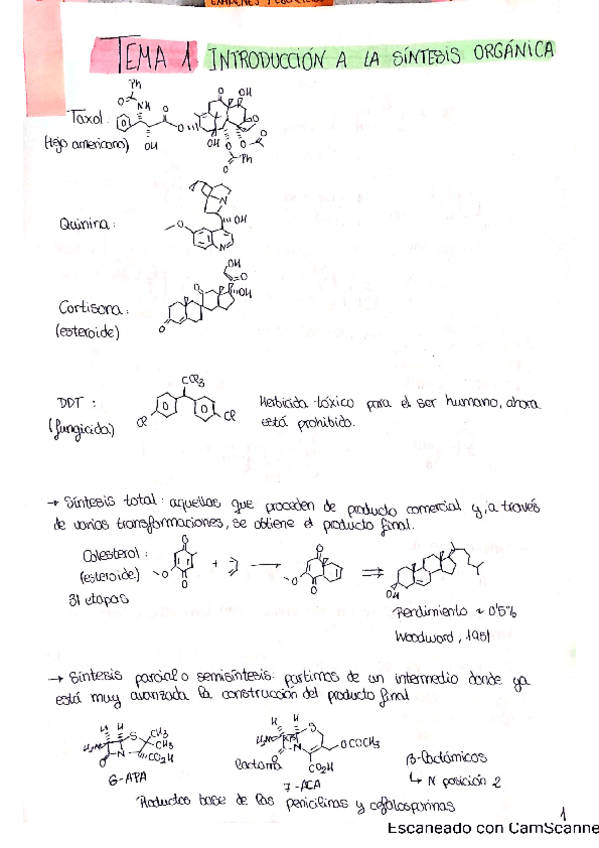 TEMA 1 INTRODUCCIÓN A LA SÍNTESIS ORGÁNICA
Taxol:
(tejo americano)
Ph
O
NH
O
OH
O
O
OH
O
OH
O
O
O
O
Ph
Quinina:
N
OH
O
N
Cortisona:
(esteroide)
OH
O
O
OH
O
DDT:
(fungicida)
CCl3
Cl
Cl
Herbicida tóxico para el ser humano, ahora
está prohibido.
→ Síntesis total: aquellas que proceden de producto comercial y, a través
de varias transformaciones, se obtiene el producto final.
Colesterol:
(esteroide)
31 etapas
O
O
O
+
O
O
O
OH
Rendimiento ~ 0'5%
Woodward, 1951
→ Síntesis parcial o semisíntesis: partimos de un intermedio donde ya
está muy avanzada la construcción del producto final
H H
H2N
S
CH3
CH3
CO2H
N
O
6-APA
H H
H2N
S
N
O
OCOCH3
CO2H
lactama
7-ACA
β-lactámicos
↳ N posición 2
Productos base de las penicilinas y cefalosporinas
1
Escaneado con CamScanne